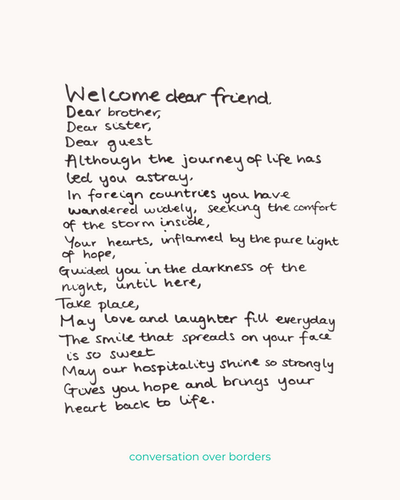 Welcome dear friend.
Dear brother,
Dear sister,
Dear guest
Although the journey of life has
led you astray.
In foreign countries you have
wandered widely, seeking the comfort
of the storm inside,
Your hearts, inflamed by the pure light
of hope,
Guided you in the darkness of the
night, until here,
Take place,
May love and laughter fill everyday
The smile that spreads on your face
is so sweet
May our hospitality shine so strongly
Gives you hope and brings your
heart back to life.
conversation over borders